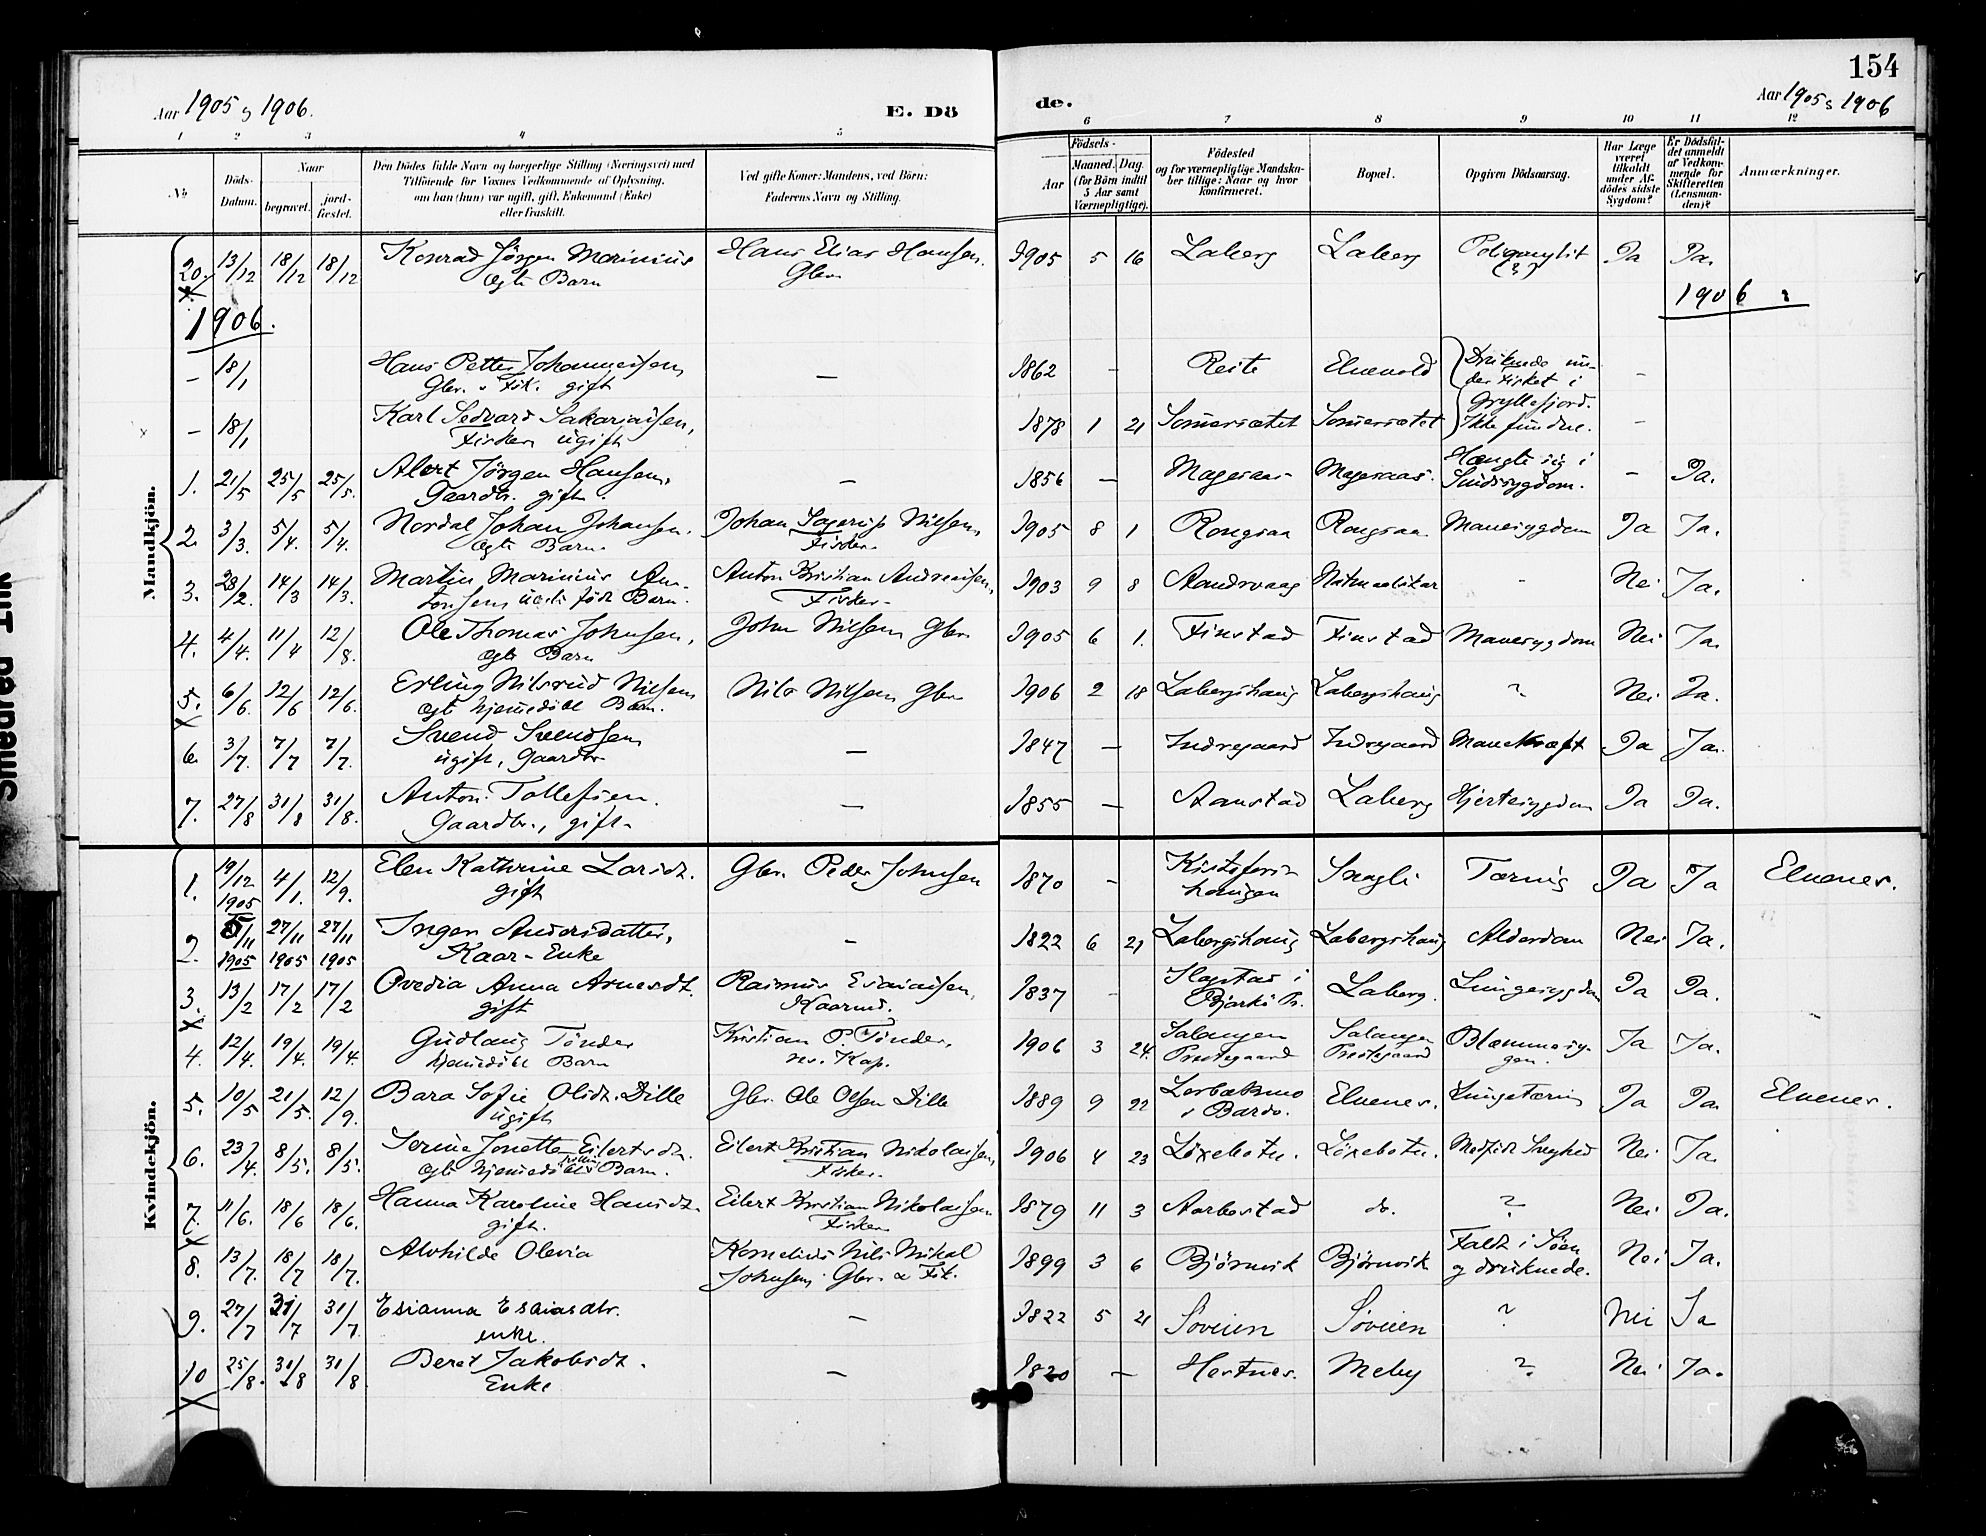 154
Aar 1905 & 1906.
E. Dö
de.
Aar 1905 & 1906
1 2 3 4 5 6 7 8 9 10 11 12
No.
Döds-Datum.
Naar
begravet.
jord-fæstet.
Den Dödes fulde Navn og borgerlige Stilling (Næringsvei) med
Tilföiende för Voxnes Vedkommende af Oplysning,
om han (hun) var ugift, gift, Enkemand (Enke)
eller fraskilt.
Ved gifte Koner: Mandens, ved Börn:
Faderens Navn og Stilling.
Födsels-
Aar
Maaned.
Dag.
(for Börn indtil
5 Aar samt
Værnepligtige).
Födested
og for værnepligtige Mandska-
ber tillige: Naar og hvor
konfirmeret.
Bopæl.
Opgiven Dödsaarsag.
Har Læge
været
tilkaldt
under Af-
dödes sidste
Sygdom?
Er Dödsfal-
det anmeldt
af Vedkom-
mende for
Skifteretten
(Lensman-
den)?
Anmærkninger.
Mandkjön.
20. 13/12 18/12 18/12 Konrad Jörgen Marinius Hans Elias Hansen. 1905 5 16 Laberg Laberg Ja Ja.
ægte Barn Gbr. (?)
1906.
1906
- 18/1 Hans Petter Johannessen — 1862 - Reite Elvevold Druknede un- -
Gbr. & Fisk. gift der Fisket i
- 18/1 Karl Sedvard Sakariassen, 1878 1 21 Somersætet Somersætet Gryllefjord. -
Fisker ugift Ikke fundne.
1. 21/5 25/5 25/5. Alert Jörgen Hansen, — 1856 — Magesaas Magesaas. Hængte sig i - Ja.
Gaardbr. gift Sindssygdom.
2. 3/3. 5/4. 5/4. Nordal Johan Johansen. Johan Nilsen 1905 8 1 Mavesygdom Ja Ja.
ægte Barn. Fisker.
3. 28/2. 14/3 14/3. Martin Marinius An- Anton Kristian Andreassen, 1903 9 8 - Nei Ja.
tonsen uægte född Barn. Fisker
4. 4/4. 11/4 12/8. Ole Thomas Johnsen, John Nilsen Gbr. 1905 6 1. Finstad Finstad Mavesygdom Nei Ja.
ægte Barn
5. 6/6. 12/6 12/6. Erling Nilsen Nils Nilsen Gbr 1906 2 18 Labergshaug Labergshaug ? Nei Ja.
ægte hjemedöbt Barn.
6. 3/7. 7/7 7/7. Svend Svendsen — 1847 — Indregaard Indregaard Mavekræft Ja Ja.
ugift, Gaardbr
7. 27/8 31/8 31/8. Anton Tollefsen. — 1855 — Aanstad Laberg Hjertesygdom Ja Ja.
Gaardbr., gift.
Kvindekjön.
1. 19/12 1905 4/1. 12/9. Elen Kathrine Larsdt. Gbr. Peder Johnsen 1870 - Kristofers- Snagli Tæring Ja Ja Elvenes.
gift haugen
2. 5/11 1905 27/11 1905 27/11 1905 Inger Andersdatter, — 1822 6 21 Labergshaug Labergshaug Alderdom Nei Ja.
Kaar-Enke
3. 13/2 17/2 17/2 Ovedia Anna Arnesdt. Rasmus Esaiassen, 1837 - Laberg. Lungesygdom Ja Ja.
gift Kaarmd. Bjarkö Pr.
4. 12/4. 19/4. 19/4. Gudlaug Tönder Kristian P. Tönder, 1906 3 24. Salangen Salangen Blæmmesy- Ja Ja.
hjemedöbt Barn res. Kap. Prestegaard Prestegaard gen.
5. 10/5 21/5. 12/9. Bara Sofie Olsdt. Dille Gbr. Ole Olsen Dille 1889 9 22 Elvenes. Lungetæring Ja Ja. Elvenes.
ugift i Bardo.
6. 23/4. 8/5. 8/5. Serine Jonette Eilertsdt. Eilert Kristian Nikolaisen, 1906 4 23 Löxebotn. Löxebotn. Medfödt Svaghed Nei Ja.
ægte hjemedöbt Barn. Fisker.
7. 11/6. 18/6 18/6. Hanna Karoline Hansdt. Eilert Kristian Nikolaisen 1879 11 3 Aarbostad do. ? Nei Ja.
gift. Fisker
8. 13/7. 18/7 18/7. Alvhilde Olevia Kornelius Nils Mikal 1899 3 6 Bjørnvik Bjørnvik Faldt i Söen Nei Ja.
Johnsen Gbr. & Fisk. og druknede.
9. 27/7 31/7 31/7. Esianna Esaiasdtr. — 1822 5 21 Söveien Söveien ? Nei Ja
enke.
10 25/8. 31/8 31/8 Beret Jakobsdt. — 1820 — Hestnes. Meby ? Nei Ja.
Enke